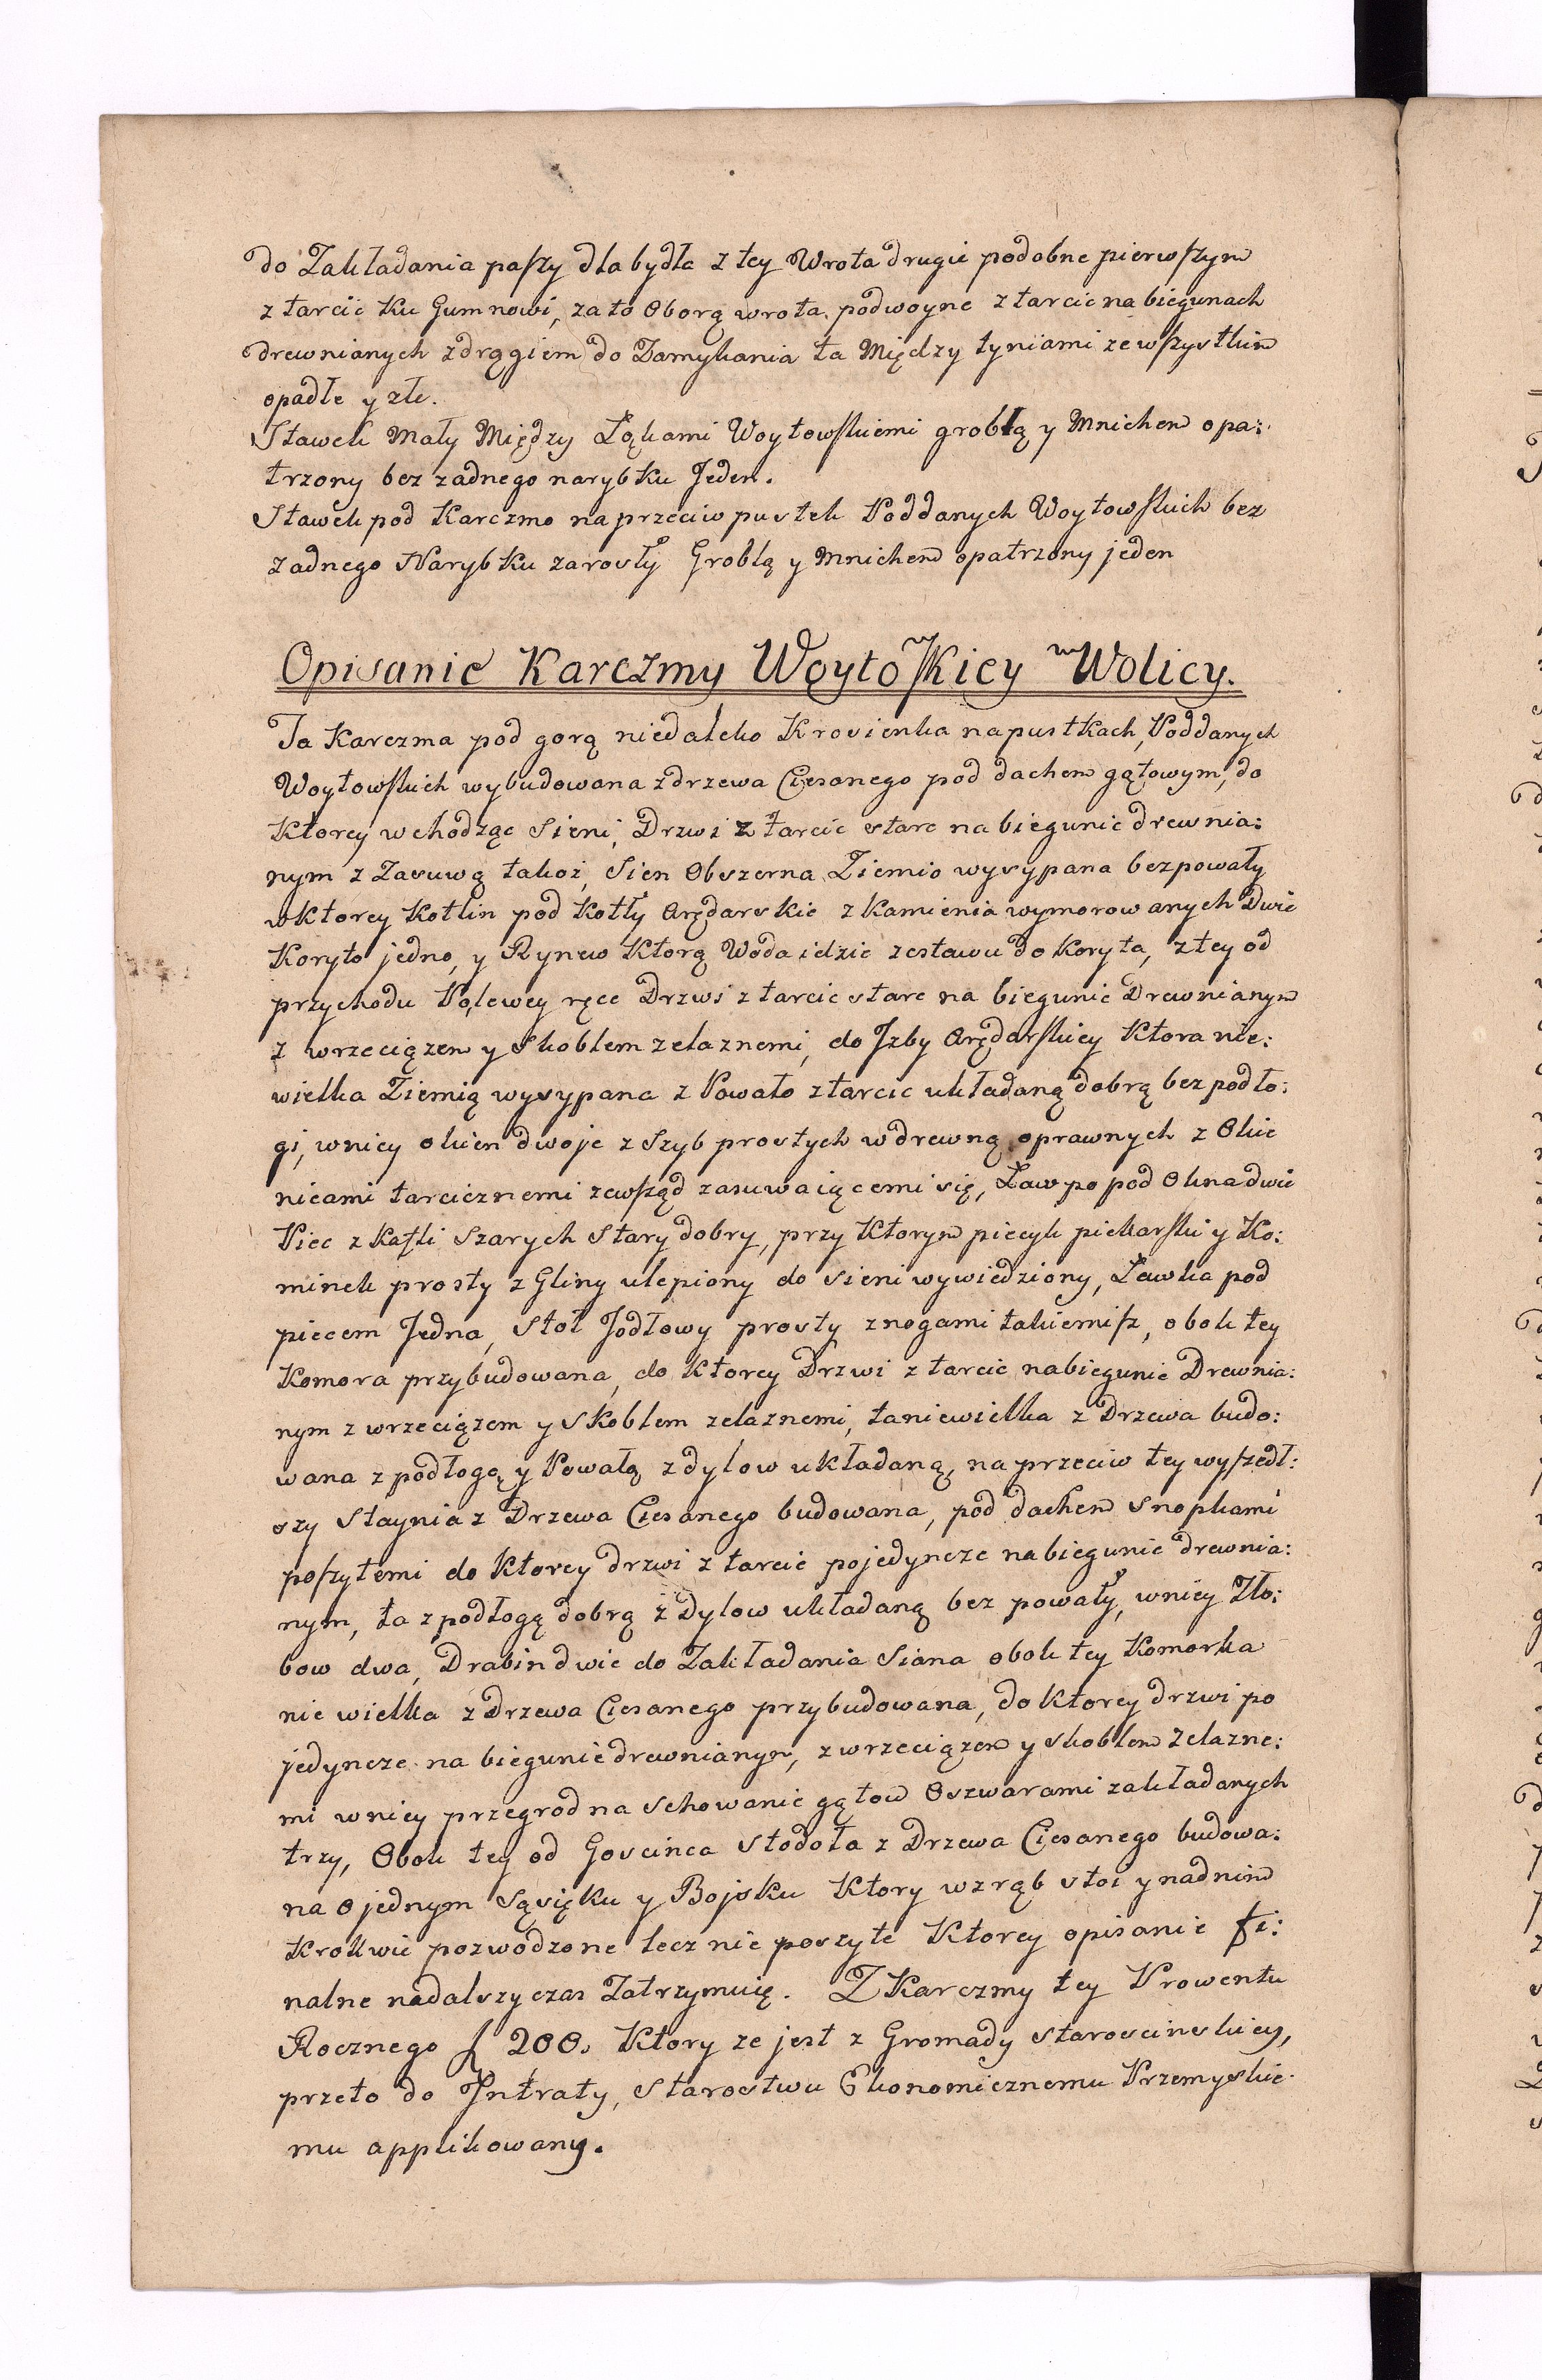 do Zakładania paszy dla bydła z tey Wrota drugie podobne pierwszym
z tarcic ku Gumnowi, za to Oborą wrota podwoyne z tarcic na biegunach
drewnianych z drągiem do Zamykania ta Między tyniami ze wszystkim
opadłe y złe.
Stawek Mały Między Łąkami Woytowskiemi groblą y Mnichem opa:
trzony bez zadnego narybku Jeden.
Stawek pod Karczmo naprzeciw pustek Poddanych Woytowskich bez
zadnego Narybku zarosły Groblą y Mnichem opatrzony jeden
Opisanie Karczmy Woytowskiey w Wolicy.
Ta Karczma pod gorą niedaleko Krosienka na pustkach Poddanych
Woytowskich wybudowana z drzewa Ciesanego pod dachem gątowym, do
Ktorey wchodząc Sieni, Drzwi z tarcic stare na biegunie drewnia:
nym z Zasuwą takoż, Sien Obszerna Ziemio wysypana bez powały
w Ktorey Kotlin pod Kotły Arędarskie z Kamienia wymorowanych Dwie
Koryto jedno, y Rynew Ktorą Woda idzie ze stawu do Koryta, z tey od
przychodu Po lewey ręce Drzwi z tarcic stare na biegunie Drewnianym
z wrzeciązem y Skoblem zelaznemi, do Jzby Arędarskiey Ktora nie:
wielka Ziemią wysypana z Powało z tarcic układaną dobrą bez podło:
gi, w niey okien dwoje z Szyb prostych w drewną oprawnych z Okie
nicami tarcicznemi zewsząd zasuwaiącemi się, Ław po pod Okna dwie
Piec z Kafli Szarych Stary dobry, przy Ktorym piecyk piekarski y Ko:
minek prosty z Gliny ulepiony do sieni wywiedziony, Ławka pod
piecem Jedna, Stoł Jodłowy prosty z nogami takiemisz, obok tey
Komora przybudowana, do Ktorey Drzwi z tarcic na biegunie Drewnia:
nym z wrzeciązem y Skoblem zelaznemi, ta niewielka z Drzewa budo:
wana z podłogą y Powałą z dylow układaną, na przeciw tey wyszedł:
szy Staynia z Drzewa Ciesanego budowana, pod dachem Snopkami
poszytemi do Ktorey drzwi z tarcic pojedyncze na biegunie drewnia:
nym, ta z podłogą dobrą z Dylow układaną bez powały, w niey Zło:
bow dwa, Drabin dwie do Zakładania Siana obok tey Komorka
nie wielka z Drzewa Ciesanego przybudowana, do Ktorey drzwi po
jedyncze na biegunie drewnianym, z wrzeciązem y skoblem Zelazne:
mi w niey przegrod na schowanie gątow Oszwarami zakładanych
trzy, Obok tey od Goscińca Stodoła z Drzewa Ciesanego budowa:
na o jednym Sąsięku y Bojsku Ktory w zrąb stoi y nad nim
Krokwie pozwodzone lecz nie poszyte Ktorey opisanie fi:
nalne na dalszy czas Zatrzymuię. Z Karczmy tey Prowentu
Rocznego f 200. Ktory ze jest z Gromady Starościnskiey,
przeto do Jntraty, Starostwu Ekonomicznemu Przemyskie
mu applikowany.